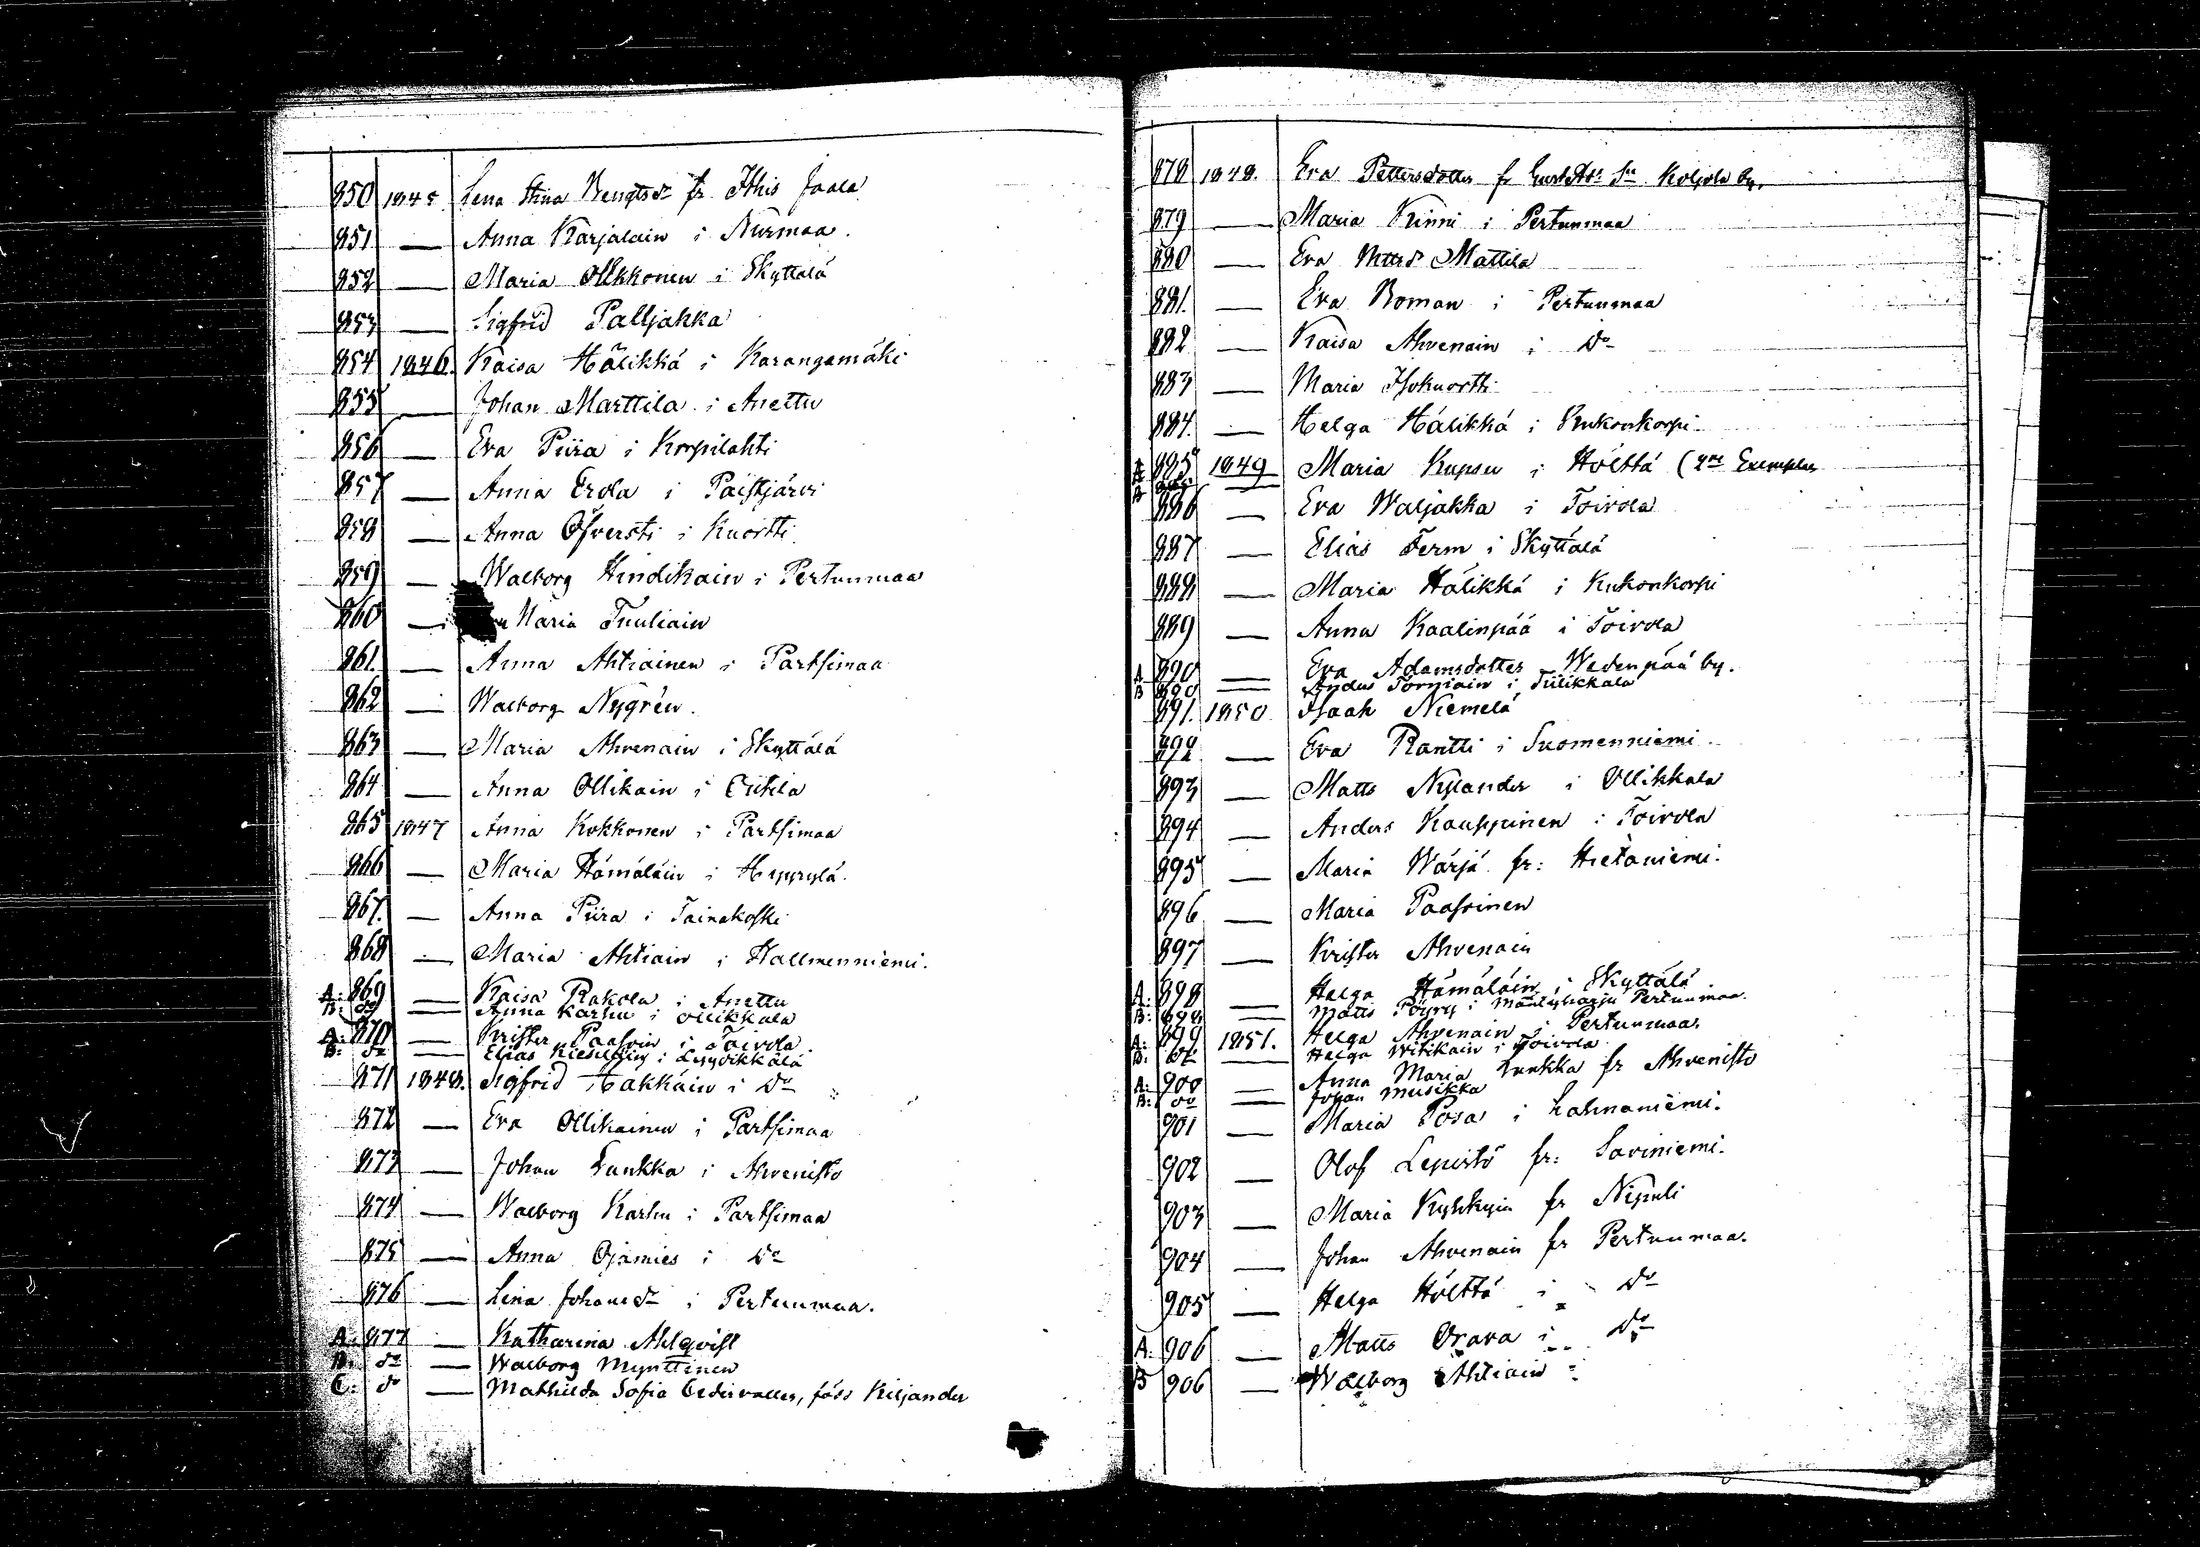 850 1845 Lena Stina Bengtsdr fr Ithis Jaala
851 — Anna Karjalain i Nurmaa.
852 — Maria Ollikkonen i Skyttälä
853 — Sigfrid Palljakka
854 1846. Kaisa Hälikkä i Karangamäki
855 — Johan Marttila i Anettu
856 — Eva Piira i Korpilahti
857 — Anna Erola i Paistjärvi
858 — Anna Öfversti i Kuortti
859 — Walborg Hindikain i Pertunmaa
860 — Maria Tuuliain
861. — Anna Ahtiainen i Partsimaa
862 — Walborg Nygrén.
863 — Maria Ahvenain i Skyttälä
864 — Anna Ollikain i
865 1847 Anna Kokkonen i Partsimaa
866 — Maria Hämäläin i Hyyrylä.
867. — Anna Piira i Tainakoski
868 — Maria Ahtiain i Hallmenniemi.
A: 869 — Kaisa Rakola i Anettu
B: do — Anna Karhu i Ollikkala
A: 870 — Krister Paasoin i Toivola.
B: do — Elias Kieseläin i Leppikkälä
871 1848. Sigfrid Hakkäin i do
872 — Eva Ollikainen i Partsimaa
873 — Johan Lankka i Ahvenisto
874 — Walborg Karhu i Partsimaa
875 — Anna Ojamies i do
876 — Lena Johansdr i Pertunmaa.
A: 877 — Katharina Ahlqvist
B: do — Walborg Mynttinen
C: do — Mathilda Sofia Cedervaller, föds Kiljander
878 1848. Eva Pettersdotter fr Koljola by.
879 — Maria Kinni i Pertunmaa
880 — Eva Mattsdr Mattila
881. — Eva Roman i Pertunmaa
882 — Kaisa Ahvenain i do
883 — Maria Isokuortti
884. — Helga Hälikkä i Kukonkorpi
A 885 1849 Maria Kupsu i Hölttä (2ne Exemplar
886 — Eva Waljakka i Toivola
887 — Elias Ferm i Skyttälä
888 — Maria Hälikkä i Kukonkorpi
889 — Anna Kaalinpää i Toivola
A 890 — Eva Adamsdotter Wedenpää by.
B 890 — Anders Törniäin i Tiilikkala
891. 1850 Isaak Niemelä
892. — Eva Rantti i Suomenniemi.
893 — Matts Nylander i Ollikkala
894 — Anders Kauppinen i Toivola
895 — Maria Wärjä fr: Hietaniemi.
896 — Maria Paasoinen
897 — Krister Ahvenain
A: 898 — Helga Hämäläin i Skyttälä
B: 898 — Matts Pöyry i Mäntyharju Pertunmaa.
A: 899 1851. Helga Ahvenain i Pertunmaa.
B: do — Helga Witikain i Toivola
A: 900 — Anna Maria Lankka fr Ahvenisto
B: do — Johan Musikka
901 — Maria Posa i Lahnaniemi.
902 — Olof Lepistö fr: Saviniemi.
903 — Maria Kyhkyin fr Nipuli
904 — Johan Ahvenain fr Pertunmaa.
905 — Helga Hölttä i do
A. 906 — Matts Orava i do
B 906 — Walborg Ahtiain